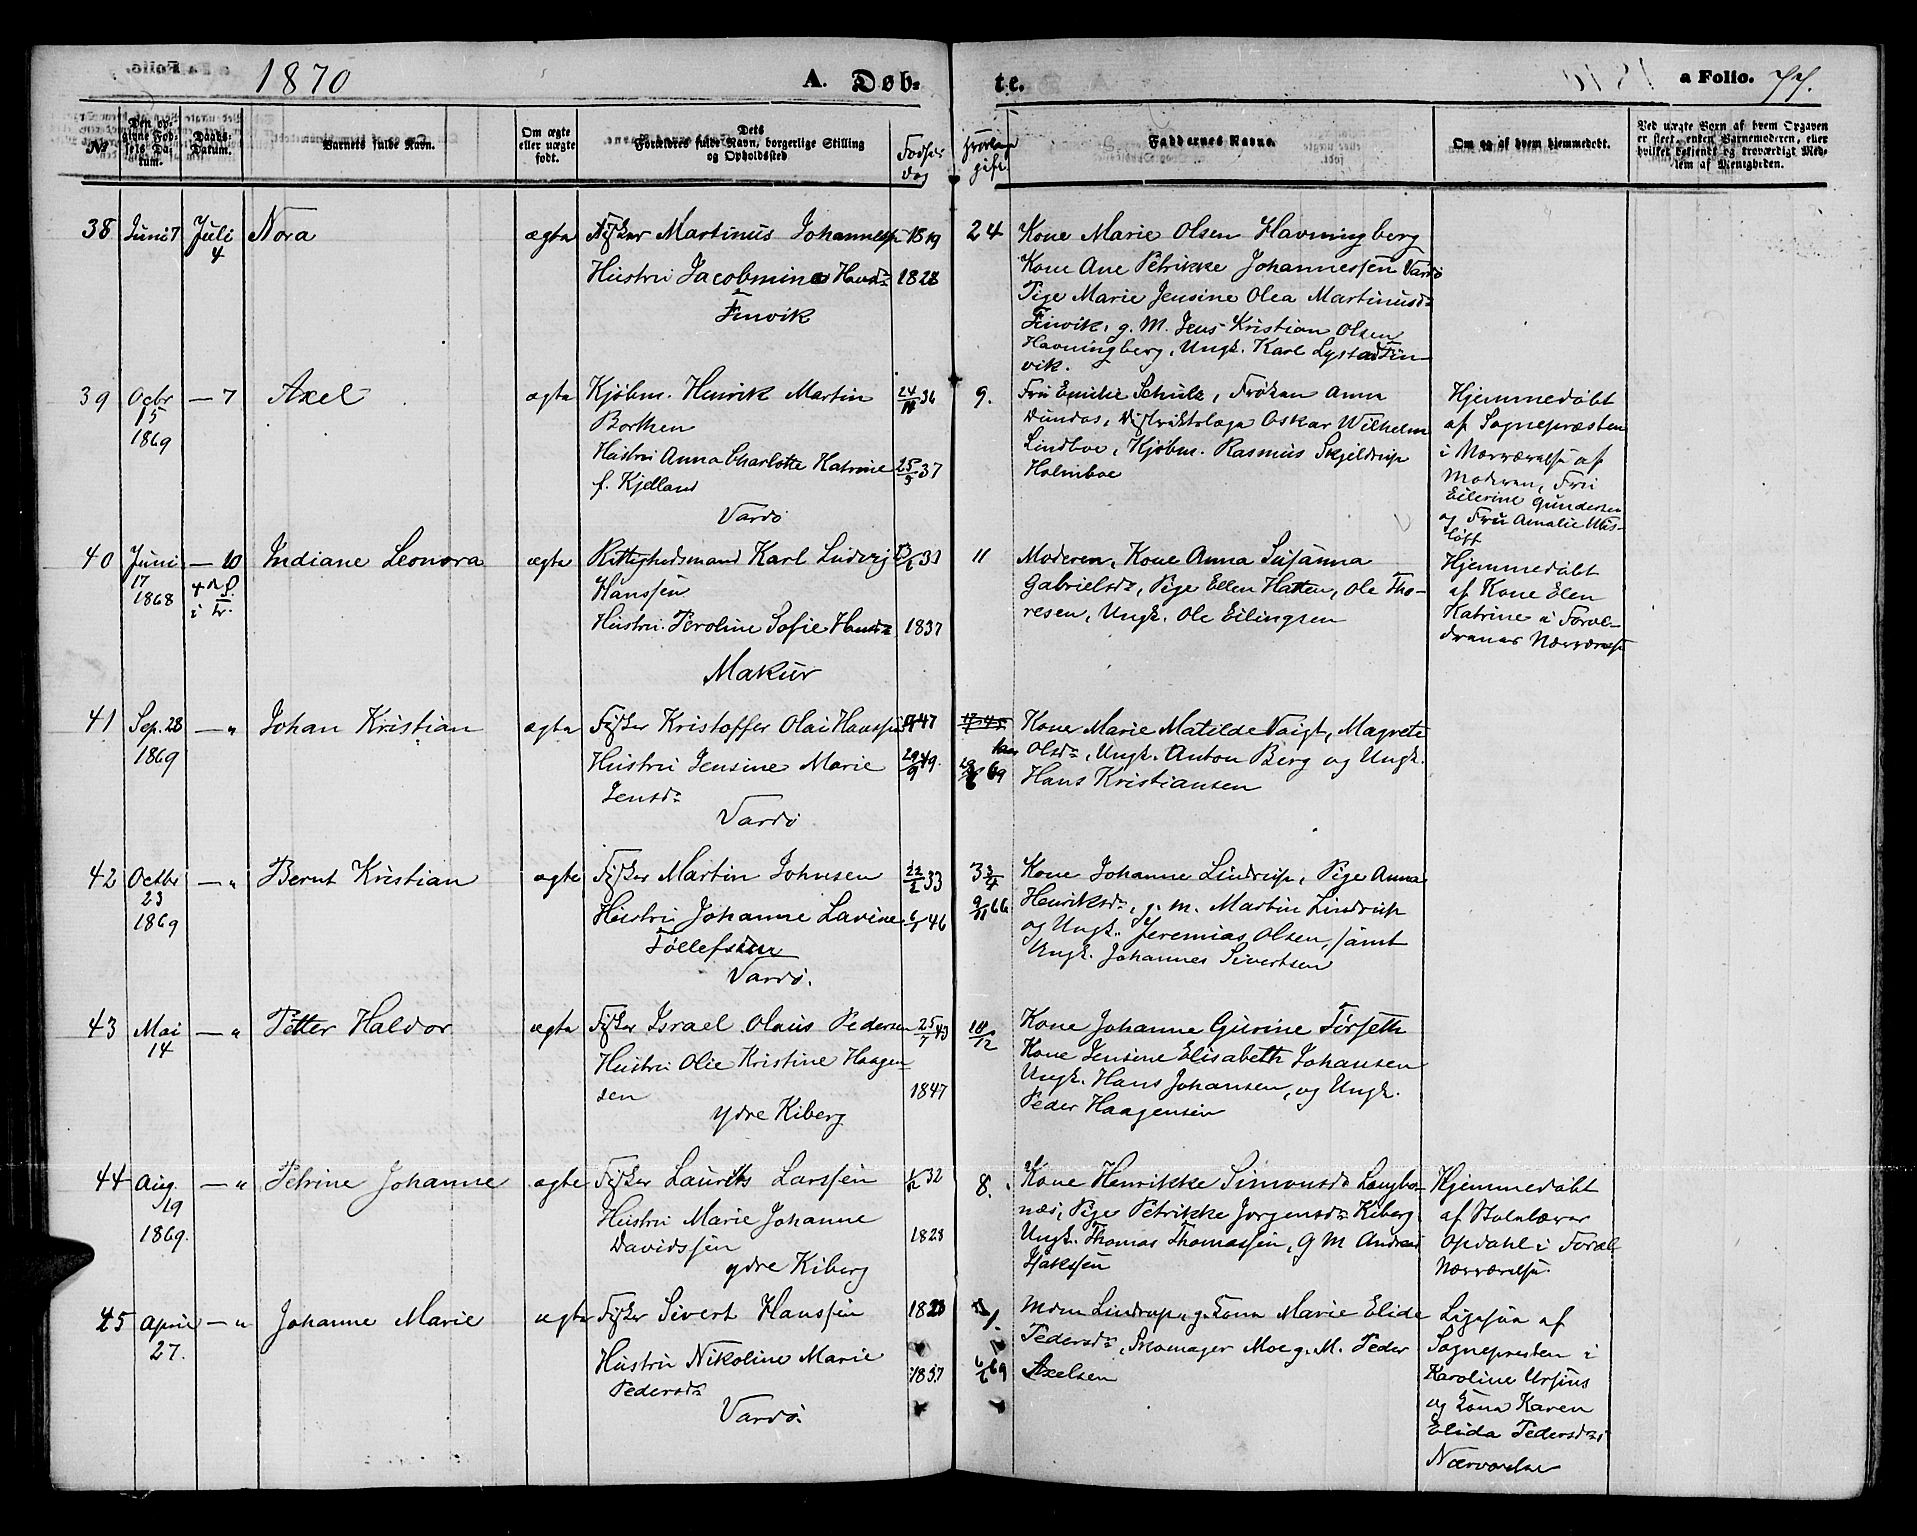 1870
A. Døb-
te.
a Folio. 77.
No
Den op-
givne Fød-
sels Da-
tum.
Daabs-
Datum.
Barnets fulde Navn.
Om ægte
eller uægte
født.
Dets
Forældres fulde Navn, borgerlige Stilling
og Opholdssted
Fødsels
dag
gift
Faddernes Navne.
Om og af hvem hjemmedøbt.
Ved uægte Børn af hvem Opgaven
er skeet, enten Barnemoderen, eller
hvilket bekjendt og troværdigt Med-
lem af Menigheden.
38 Juni 7 Juli 4 Nora ægte Fisker Martinus Johannessen 1819
Hustru Jacobmine Hansdr 1828
Finvik
24 Kone Marie Olsen Havningberg
Kone Ane Petrikke Johannessen Vardø
Pige Marie Jensine Olea Martinusdr
Finvik, g. M. Jens Kristian Olsen
Havningberg, Ungk. Karl Lystad Fin-
vik.
39 Octbr 15 1869 — 7 Axel ægte Kjøbm. Henrik Martin 24/11 36
Borthen
Hustru Anna Charlotte Katrine 25/5 37
f. Kjelland
Vardø
9. Fru Emilie Schulz, Frøken Anna
Dundas, Distriktslæge Oskar Wilhelm
Lindboe, Kjøbm. Rasmus Skjeldrup
Holmboe
Hjemmedøbt
af Sognepræsten
i Nærværelse af
Moderen, Fru
Eilerine Gundersen
og Fru Amalie Wis-
løff
40 Juni 17 1868 — 10 4 S. i Tr. Indiane Leonora ægte Rettighedsmand Karl Ludvig 33
Hanssen
Hustru Peroline Sofie Hansdr 1837
Makur
11 Moderen, Kone Anna Susanna
Gabrielsdr, Pige Ellen Hatten, Ole Tho-
resen, Ungk. Ole Eilingsen
Hjemmedøbt
af Kone Elen
Katrine i Foræl-
drenes Nærværelse
41 Sep. 28 1869 — " Johan Kristian ægte Fisker Kristoffer Olai Hanssen 47
Hustru Jensine Marie 29/9 49.
Jensdr
Vardø
69 Kone Marie Matilde Voigt, Magrete
Olsdr, Ungk. Anton Berg og Ungk.
Hans Kristiansen
42 Octbr 23 1869 — " Bernt Kristian ægte Fisker Martin Johnsen 22/2 33
Hustru Johanne Lavine 6/1 46
Tollefsen
Vardø.
3 3/4
9/11 66
Kone Johanne Lindrup, Pige Anna
Henriksdr, g. m. Martin Lindrup
og Ungk. Jeremias Olsen, samt
Ungk. Johannes Sivertsen
43 Mai 14 — " Petter Haldor ægte Fisker Israel Olaus Pedersen 25/7 43
Hustru Olie Kristine Haagen-
sen 1847
ydre Kiberg
10/12 Kone Johanne Gurine Forseth
Kone Jensine Elisabeth Johansen
Ungk. Hans Johansen, og Ungk.
Peder Haagensen
44 Aug. 19 1869. — " Petrine Johanne ægte Fisker Laurits Larssen 32
Hustru Marie Johanne 1823
Davidssen
ydre Kiberg
8. Kone Henrikke Simonsdr Langbu-
næs, Pige Petrikke Jørgensdr Kiberg,
Ungk. Thomas Thomassen, g M Andreas
Isaksen
Hjemmedøbt
af Skolelærer
Opdahl i Foræl
Nærværelse.
45 April 27. — " Johanne Marie ægte Fisker Sivert Hanssen 1823
Hustru Nikoline Marie 1837
Pedersdr
Vardø
69 Mdm Lindrup, g. Kona Marie Elide
Pedersdr, Skomager Moe g. M. Peder
Axelsen
Ligesaa af
Sognepresten i
Karoline Ursins
og Kona Karen
Elida Pedersdrs
Nærværelse